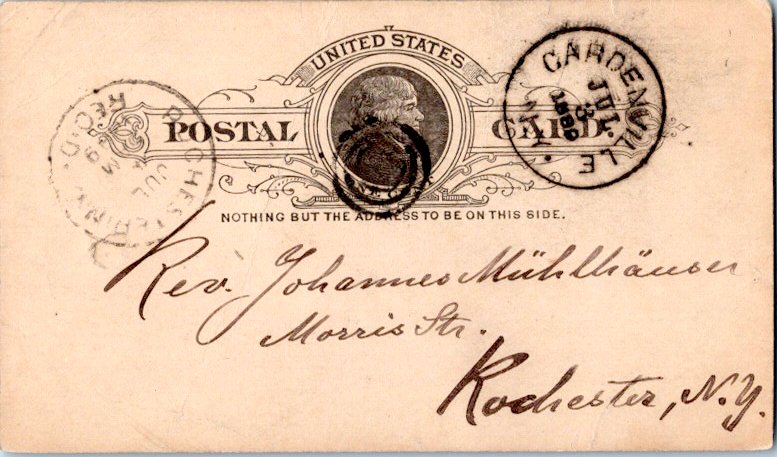 UNITED STATES
POSTAL CARD.
ONE CENT
NOTHING BUT THE ADDRESS TO BE ON THIS SIDE.
GARDENVILLE N.Y.
JUL
3
ROCHESTER, N.Y.
JUL
REC'D.
Rev. Johannes Mühlhäuser
Morris Str.
Rochester, N.Y.